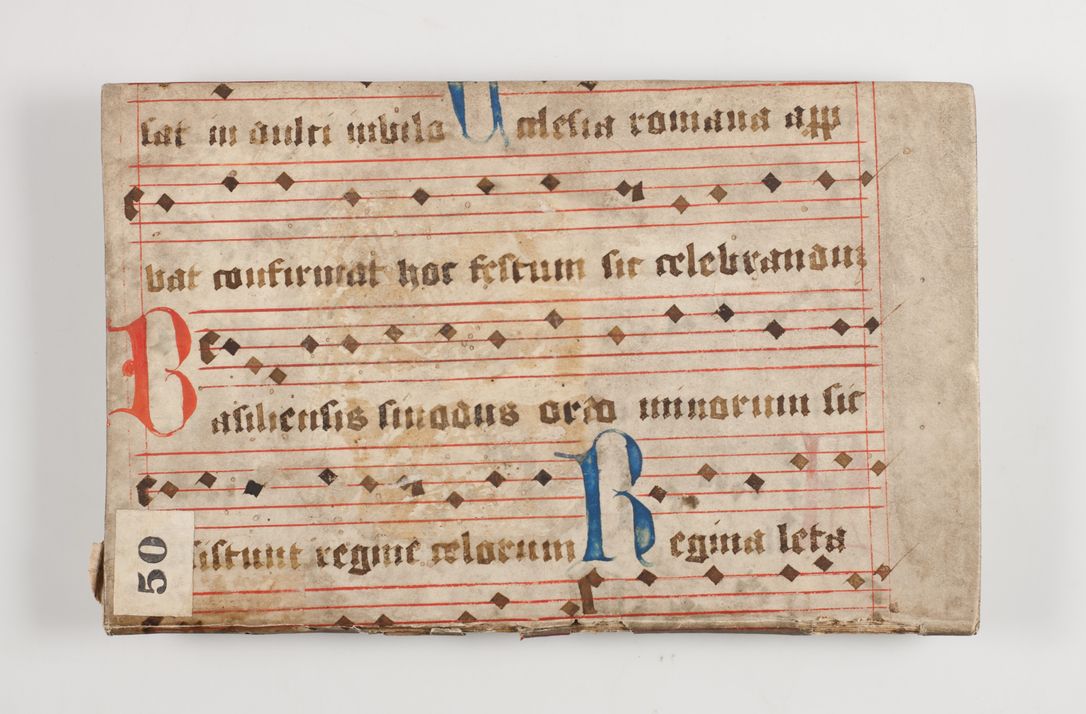 sat in dulci iubilo Ecclesia romana app
bat confirmat hoc festum sic celebrandum
Basiliensis sinodus ordo minorum sic
sistunt regine celorum Regina leta
50